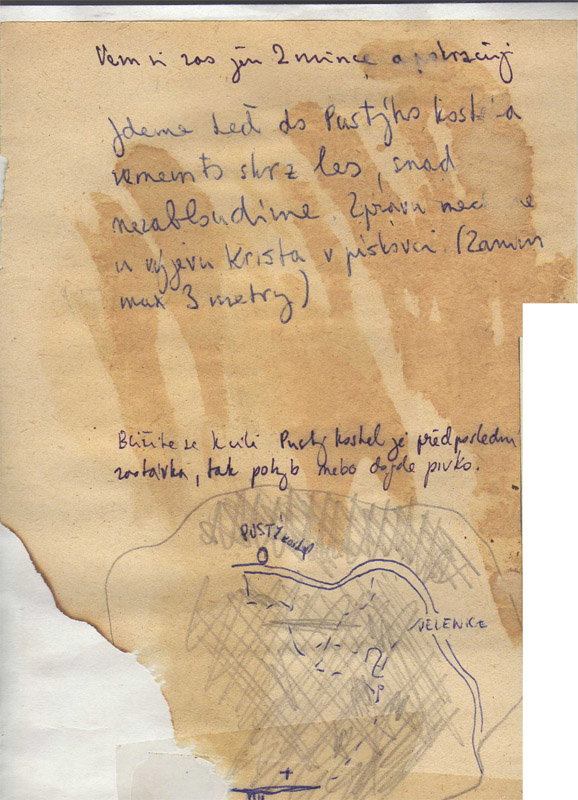 Vem si zas jen 2 mince a pokračuj
Jdeme teď do Pustýho kostela
vememto skrz les, snad
nezabloudíme. Zprávu
u výjevu Krista v pískovci (Zanim
max 3 metry)
Blížíte se k cíli Pustý kostel je předposlední
zastávka, tak pohyb nebo dojde pivko.
PUSTÝ kostel
VELENICE